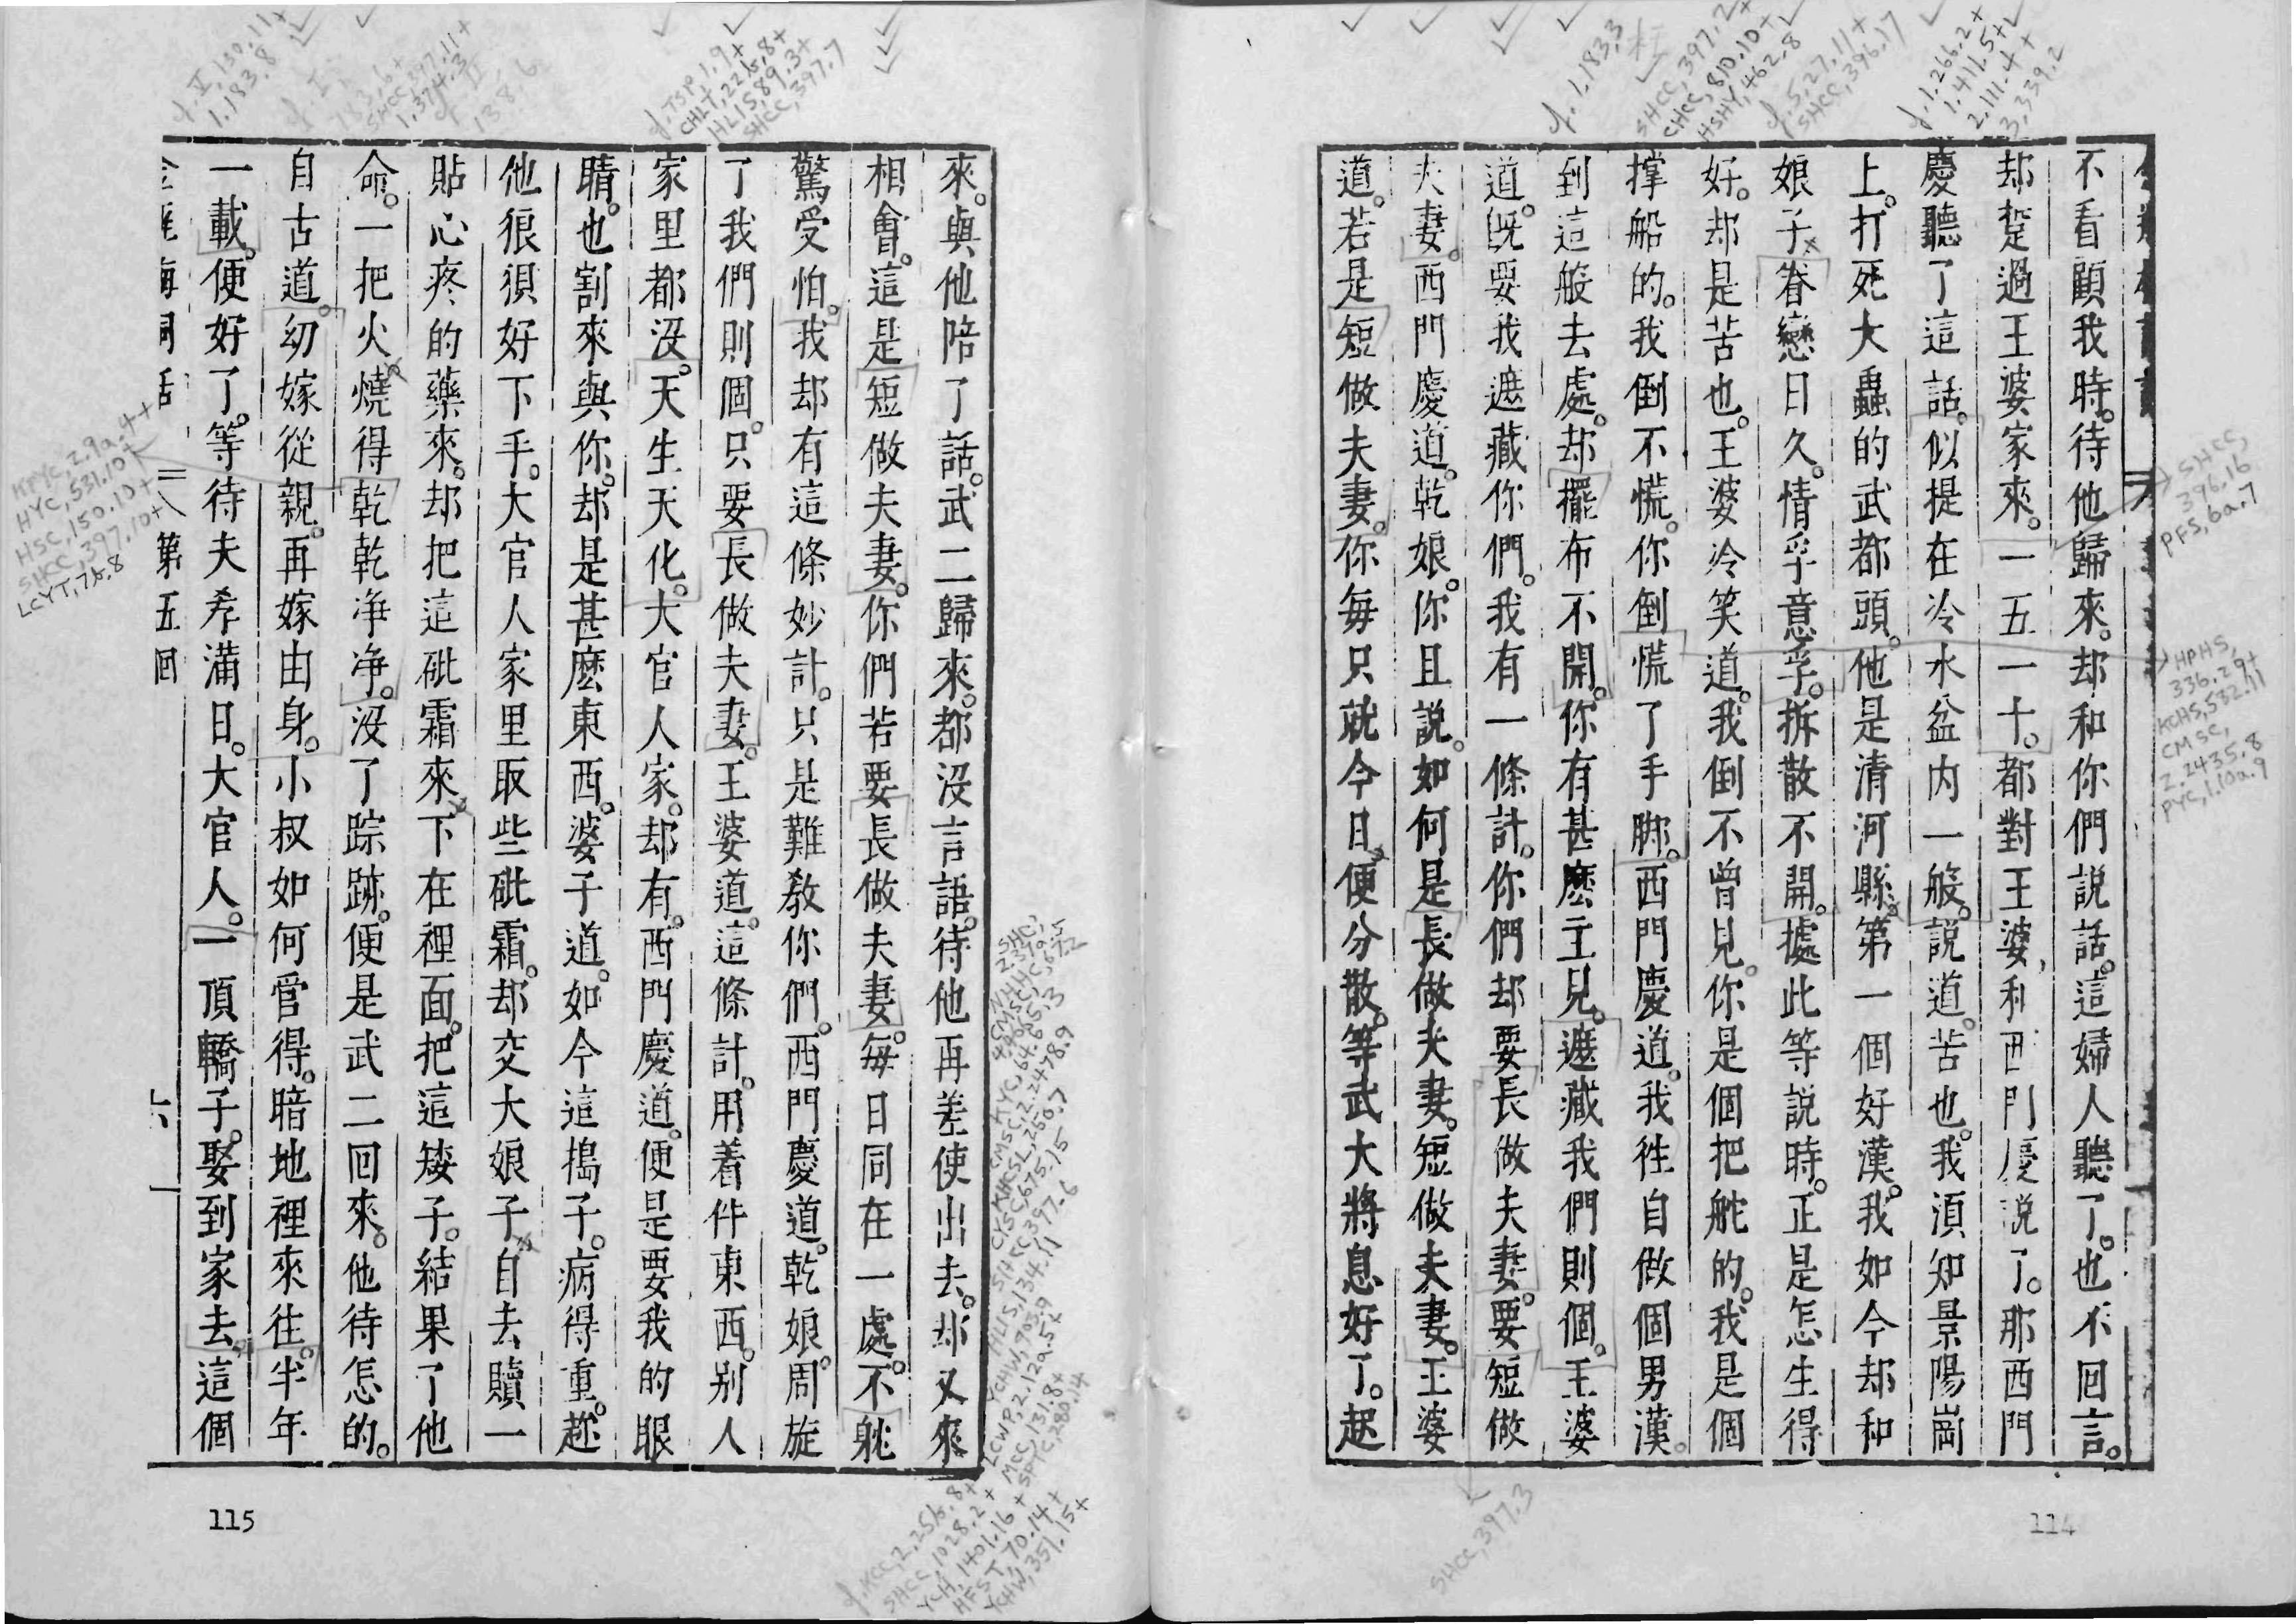 不看顧我時。待他歸來。却和你們說話。這婦人聽了。也不回言。
却踅過王婆家來。一五一十。都對王婆和西門慶說了。那西門
慶聽了這話。似提在冷水盆内一般。說道。苦也。我須知景陽崗
上。打死大蟲的武都頭。他是清河縣第一個好漢。我如今却和
娘子眷戀日久。情孚意孚。拆散不開。據此等說時。正是怎生得
好。却是苦也。王婆冷笑道。我倒不曾見。你是個把舵的。我是個
撑船的。我倒不慌。你倒慌了手脚。西門慶道。我徃自做個男漢。
到這般去處。却擺布不開。你有甚麽主見。遮藏我們則個。王婆
道。旣要我遮藏你們。我有一條計。你們却要長做夫妻。要短做
夫妻。西門慶道。乾娘。你且說。如何是長做夫妻。短做夫妻。王婆
道。若是短做夫妻。你每只就今日便分散。等武大將息好了。起
114
SHCC, 396.16
PFS, 6a.7
HPHS, 336.29+
KCHS, 532.11
CMSC, 2.2435.8
PYC, 1.10a.9
cf. 1.266.2+
1.411.5+
2.111.4+
3.339.2
cf. 5,27.11+
SHCC, 396.17
SHCC, 397.2+
CHCC, 810.10+
HSHY, 462.8
cf. 1.183.3
SHCC, 397.3
來。與他陪了話。武二歸來。都沒言語。待他再差使出去。却又來
相會。這是短做夫妻。你們若要長做夫妻。每日同在一處。不躭
驚受怕。我却有這條妙計。只是難教你們。西門慶道。乾娘。周旋
了我們則個。只要長做夫妻。王婆道。這條計。用着件東西。别人
家里都沒。天生天化。大官人家。却有。西門慶道。便是要我的眼
睛。也割來與你。却是甚麽東西。婆子道。如今這搗子。病得重。趂
他狠狽好下手。大官人家里取些砒霜。却交大娘子自去贖一
貼心疼的藥來。却把這砒霜來下在裡面。把這矮子。結果了他
命。一把火燒得乾乾净净。沒了踪跡。便是武二回來。他待怎的。
自古道。幼嫁從親。再嫁由身。小叔如何管得。暗地裡來往。半年
一載。便好了。等待夫孝滿日。大官人。一頂轎子。娶到家去。這個
金瓶梅詞話 第五回 六
115
cf. TSP, 1.9+
CHLT, 22b.8+
HLIS, 89.3+
SHCC, 397.7
SHCC, 397.11+
1.374.3
cf. I, 130.11+
1.183.8
KPYC, 2.9a.4+
HYC, 531.10+
HSC, 150.10+
SHCC, 397.10+
LCYT, 7b.8
cf. KCC, 2,25b.8+
SHCC, 1028.2+
YCH, 1401.16+
HFST, 70.14+
YCHW, 351.15+